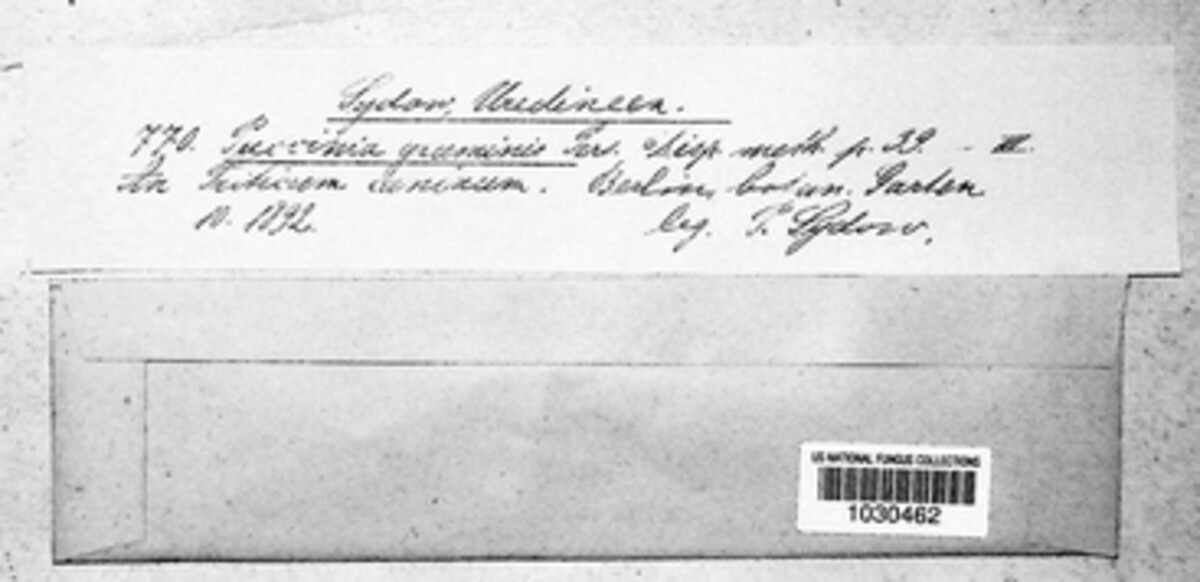 Sydow, Uredineen.
770. Puccinia graminis Pers. Disp. meth. p. 39. - III.
An Triticum caninum. Berlin, botan. Garten
10. 1892. leg. P. Sydow.
US NATIONAL FUNGUS COLLECTIONS
1030462